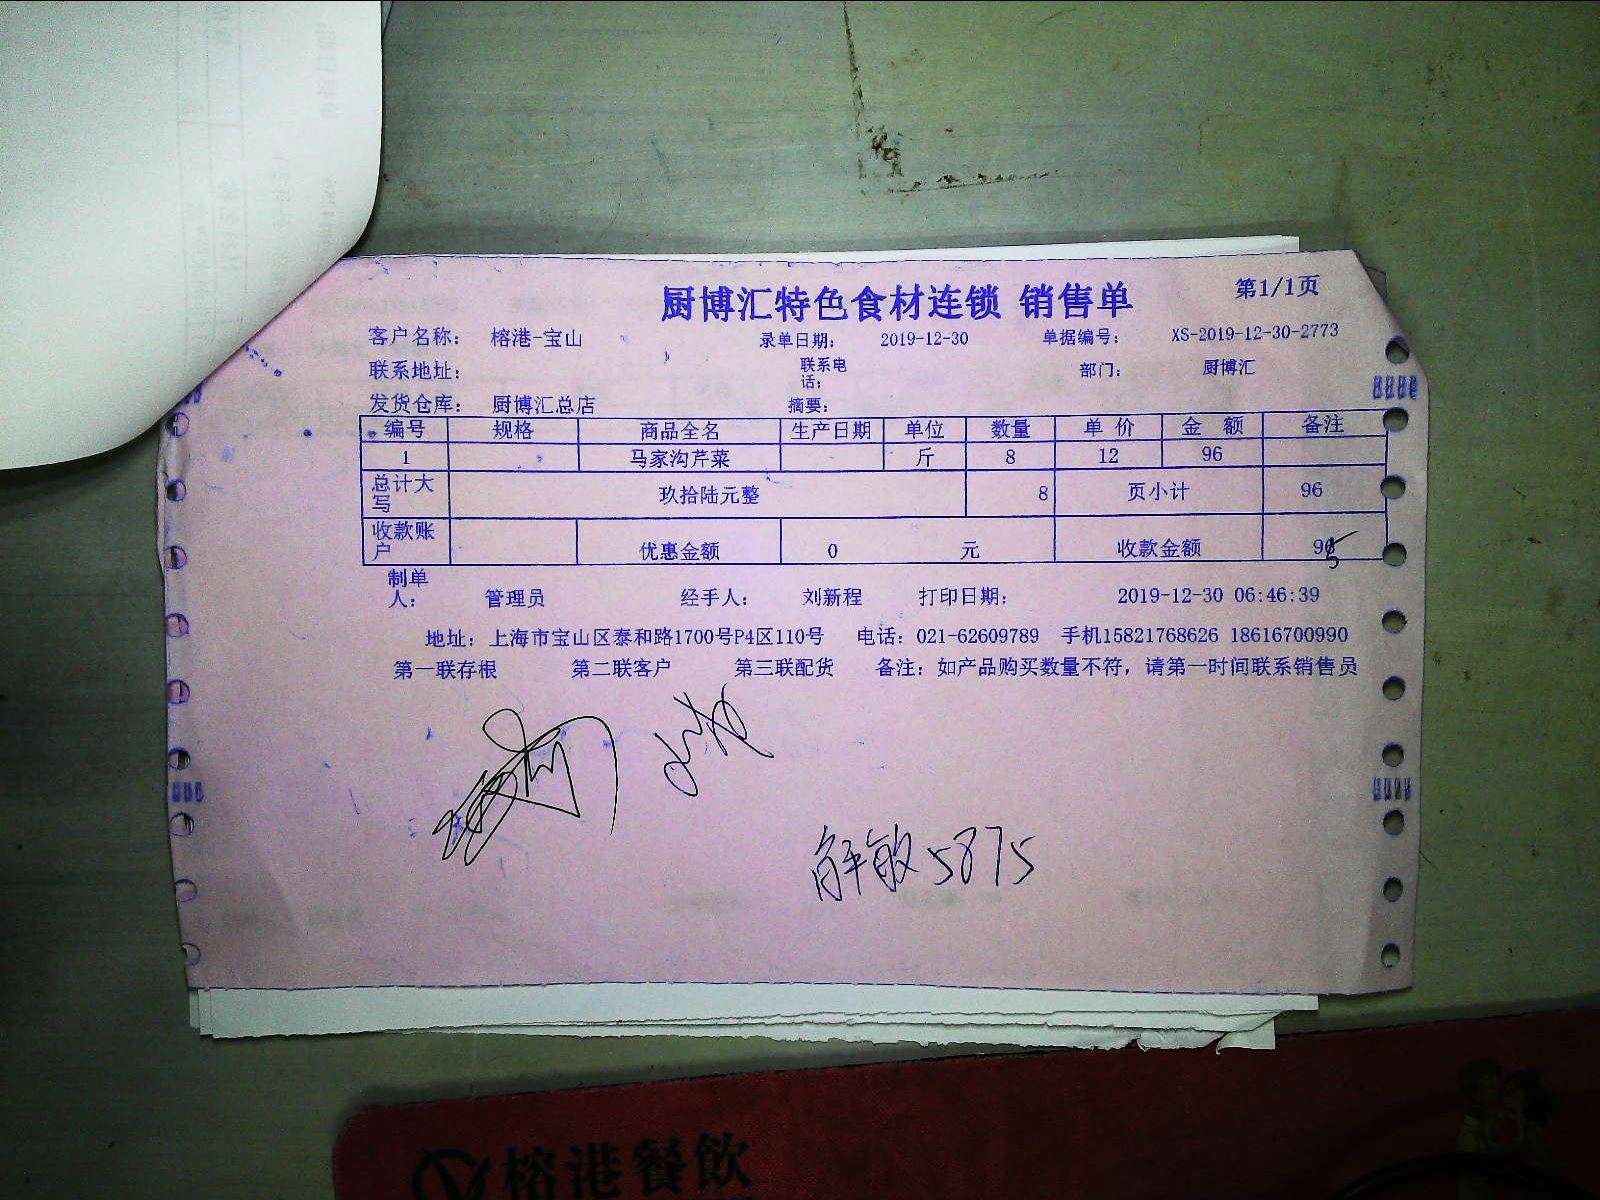 厨博汇特色食材连锁 销售单 第1/1页
客户名称: 榕港-宝山 录单日期: 2019-12-30 单据编号: XS-2019-12-30-2773
联系地址: 联系电话: 部门: 厨博汇
发货仓库: 厨博汇总店 摘要:
编号 规格 商品全名 生产日期 单位 数量 单 价 金 额 备注
1 马家沟芹菜 斤 8 12 96
总计大写 玖拾陆元整 8 页小计 96
收款账户 优惠金额 0 元 收款金额 96
制单人: 管理员 经手人: 刘新程 打印日期: 2019-12-30 06:46:39
地址: 上海市宝山区泰和路1700号P4区110号 电话: 021-62609789 手机15821768626 18616700990
第一联存根 第二联客户 第三联配货 备注: 如产品购买数量不符, 请第一时间联系销售员
解敏 5875
榕港餐飲